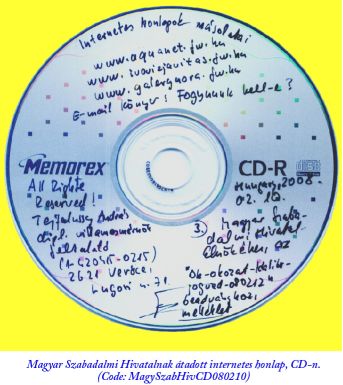 Internetes honlapok másolatai
www.aquanet.fw.hu
www.ivovizjavitas.fw.hu
www.galenmora.fw.hu
E-mail könyv: Fogyunk kell-e?
Memorex
CD-R
All Rights
Reserved!
Tejfalussy András
dipl. villamosmérnök
feltaláló
(1-420415-0215)
2621 Verőce,
Lugosi u. 71.
Hungary, 2008.
02. 10.
3.) Magyar Szaba-
dalmi Hivatal
elnökének, az
"Ok-okozat-
jogved-080212"
beadványhoz,
melléklet
Magyar Szabadalmi Hivatalnak átadott internetes honlap, CD-n.
(Code: MagySzabHivCD080210)